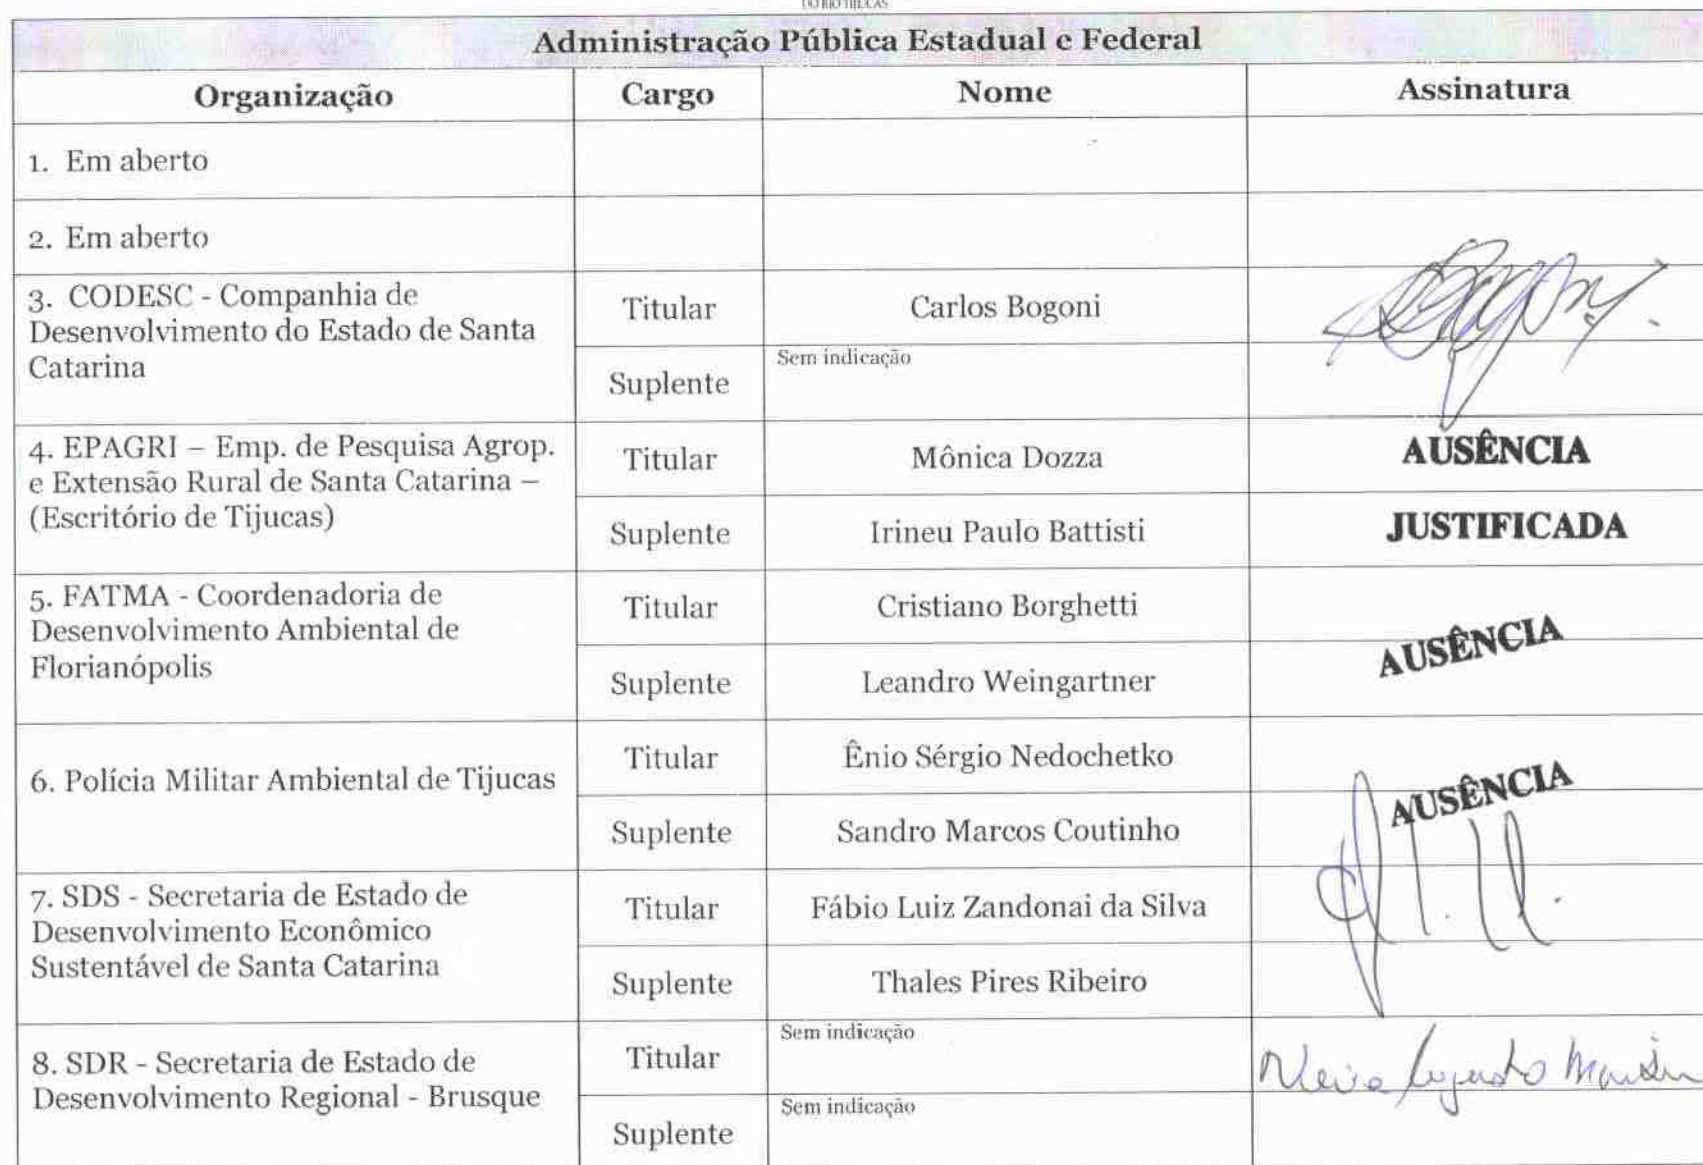 DO RIO TIJUCAS
Administração Pública Estadual e Federal
Organização Cargo Nome Assinatura
1. Em aberto
2. Em aberto
3. CODESC - Companhia de
Desenvolvimento do Estado de Santa
Catarina
Titular Carlos Bogoni
Suplente Sem indicação
4. EPAGRI – Emp. de Pesquisa Agrop.
e Extensão Rural de Santa Catarina –
(Escritório de Tijucas)
Titular Mônica Dozza AUSÊNCIA
Suplente Irineu Paulo Battisti JUSTIFICADA
5. FATMA - Coordenadoria de
Desenvolvimento Ambiental de
Florianópolis
Titular Cristiano Borghetti
AUSÊNCIA
Suplente Leandro Weingartner
6. Polícia Militar Ambiental de Tijucas
Titular Ênio Sérgio Nedochetko
AUSÊNCIA
Suplente Sandro Marcos Coutinho
7. SDS - Secretaria de Estado de
Desenvolvimento Econômico
Sustentável de Santa Catarina
Titular Fábio Luiz Zandonai da Silva
Suplente Thales Pires Ribeiro
8. SDR - Secretaria de Estado de
Desenvolvimento Regional - Brusque
Titular Sem indicação
Suplente Sem indicação